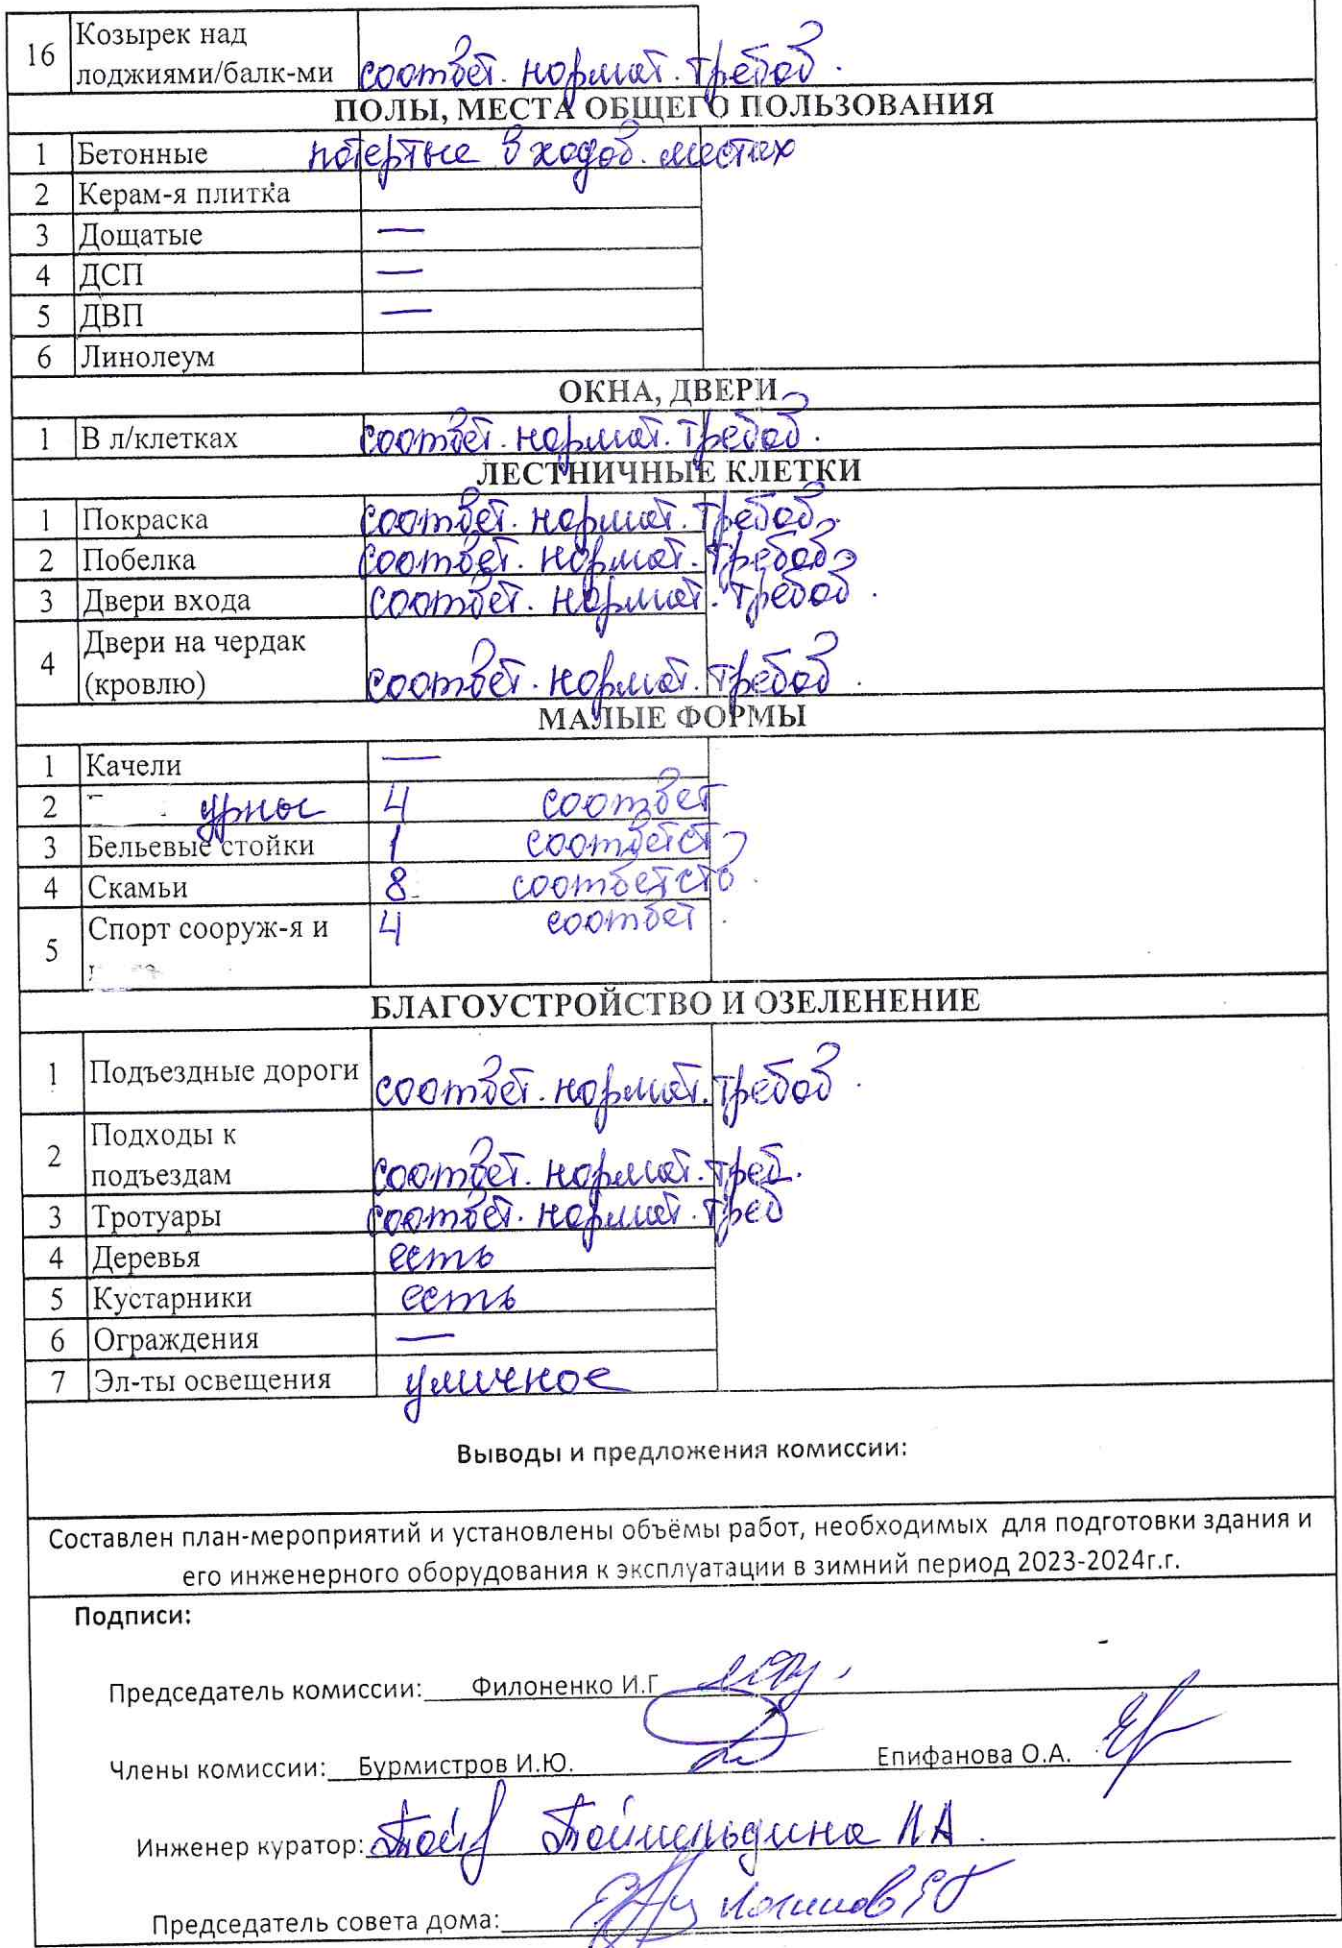 16 Козырек над
лоджиями/балк-ми соответ. нормат. требов.
ПОЛЫ, МЕСТА ОБЩЕГО ПОЛЬЗОВАНИЯ
1 Бетонные потертые в ходов. местах
2 Керам-я плитка
3 Дощатые —
4 ДСП —
5 ДВП —
6 Линолеум
ОКНА, ДВЕРИ
1 В л/клетках соответ. нормат. требов.
ЛЕСТНИЧНЫЕ КЛЕТКИ
1 Покраска соответ. нормат. требов.
2 Побелка соответ. нормат. требов.
3 Двери входа соответ. нормат. требов.
4 Двери на чердак
(кровлю) соответ. нормат. требов.
МАЛЫЕ ФОРМЫ
1 Качели —
2 урны 4 соответ
3 Бельевые стойки 1 соответств
4 Скамьи 8 соответств.
5 Спорт сооруж-я и 4 соответ.
БЛАГОУСТРОЙСТВО И ОЗЕЛЕНЕНИЕ
1 Подъездные дороги соответ. нормат. требов.
2 Подходы к
подъездам соответ. нормат. треб.
3 Тротуары соответ. нормат. треб
4 Деревья есть
5 Кустарники есть
6 Ограждения —
7 Эл-ты освещения уличное
Выводы и предложения комиссии:
Составлен план-мероприятий и установлены объёмы работ, необходимых для подготовки здания и
его инженерного оборудования к эксплуатации в зимний период 2023-2024г.г.
Подписи:
Председатель комиссии: Филоненко И.Г
Члены комиссии: Бурмистров И.Ю. Епифанова О.А.
Инженер куратор:
Председатель совета дома: